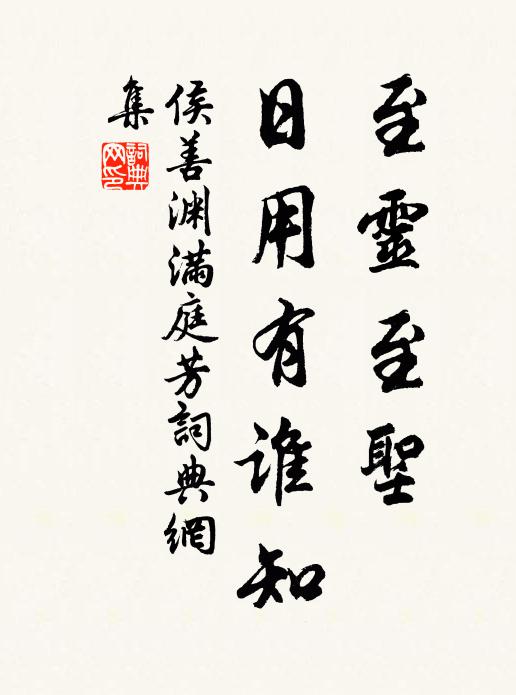 至靈至聖
日用有誰知
侯善淵滿庭芳詞典網
集
詞典
网印